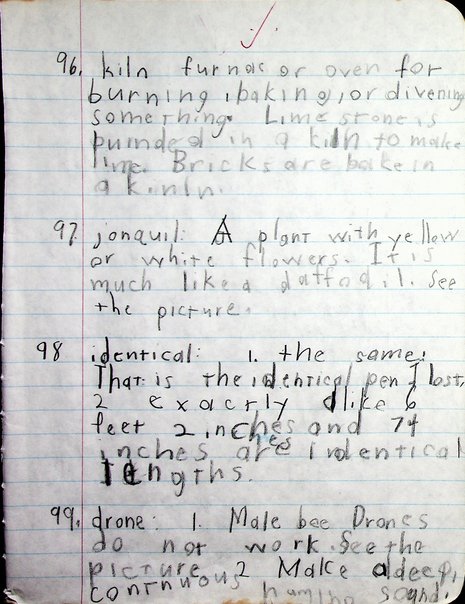 96. kiln furnac or oven for
burning, baking, or divening
something. Lime stone is
puinded in a kiln to make
lime. Bricks are bake in
a kinln.
97. jonquil: A plant with yellow
or white flowers. It is
much like a daffodil. See
the picture.
98 identical: 1. the same.
That is the identical pen I lost.
2 exacrly alike 6
feet 2 inches and 74
inches are indentical
lengths.
99. drone: 1. Male bee Drones
do not work. See the
picture 2 Make a deep,
contnuous huming sound.